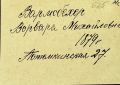 Вармбехер
Варвара Михайловна
1879г.
Потемкинская 27.